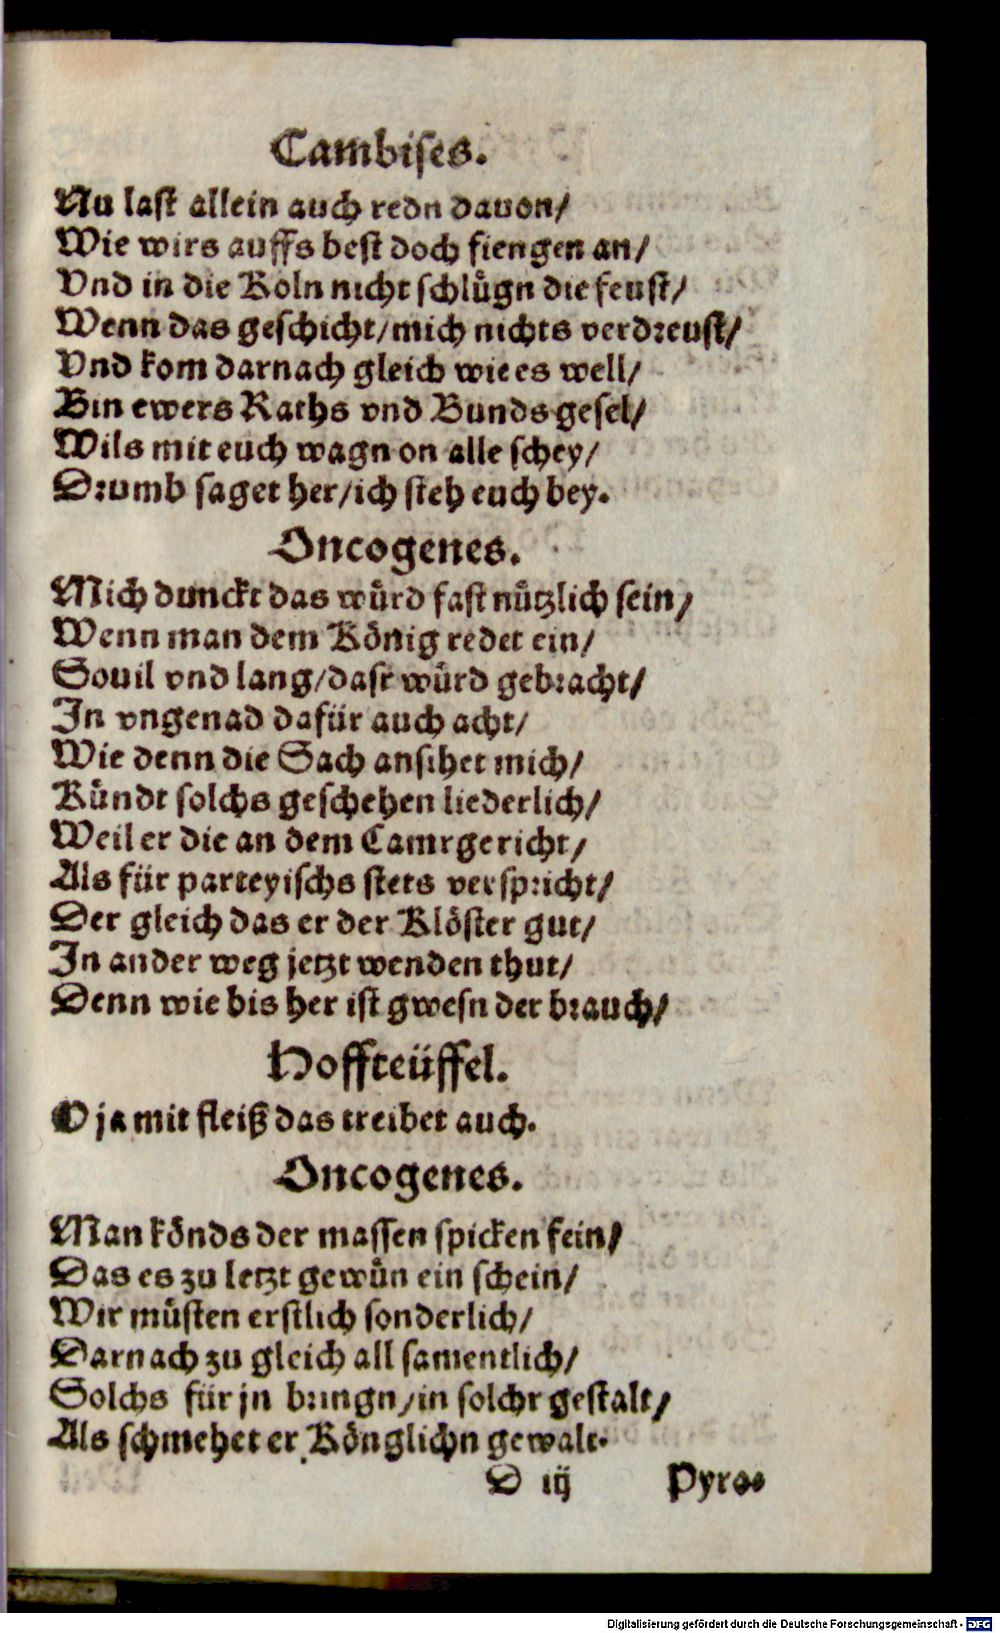 Cambises.
Nu last allein auch redn dauon/
Wie wirs auffs best doch fiengen an/
Vnd in die Koln nicht schluͤgn die feust/
Wenn das geschicht/mich nichts verdreust/
Vnd kom darnach gleich wie es well/
Bin ewers Raths vnd Bunds gesel/
Wils mit euch wagn on alle schey/
Drumb saget her/ich steh euch bey.
Oncogenes.
Mich dunckt das wuͤrd fast nuͤtzlich sein/
Wenn man dem Koͤnig redet ein/
Souil vnd lang/dast wuͤrd gebracht/
In vngenad dafür auch acht/
Wie denn die Sach ansihet mich/
Kuͤndt solchs geschehen liederlich/
Weil er die an dem Camrgericht/
Als für parteyischs stets verspricht/
Der gleich das er der Kloͤster gut/
In ander weg jetzt wenden thut/
Denn wie bis her ist gwesn der brauch/
Hoffteüffel.
O ja mit fleiß das treibet auch.
Oncogenes.
Man koͤnds der massen spicken fein/
Das es zu letzt gewuͤn ein schein/
Wir muͤsten erstlich sonderlich/
Darnach zu gleich all samentlich/
Solchs für jn bringn/in solchr gestalt/
Als schmehet er Koͤnglichn gewalt.
D iij Pyro=
Digitalisierung gefördert durch die Deutsche Forschungsgemeinschaft - DFG